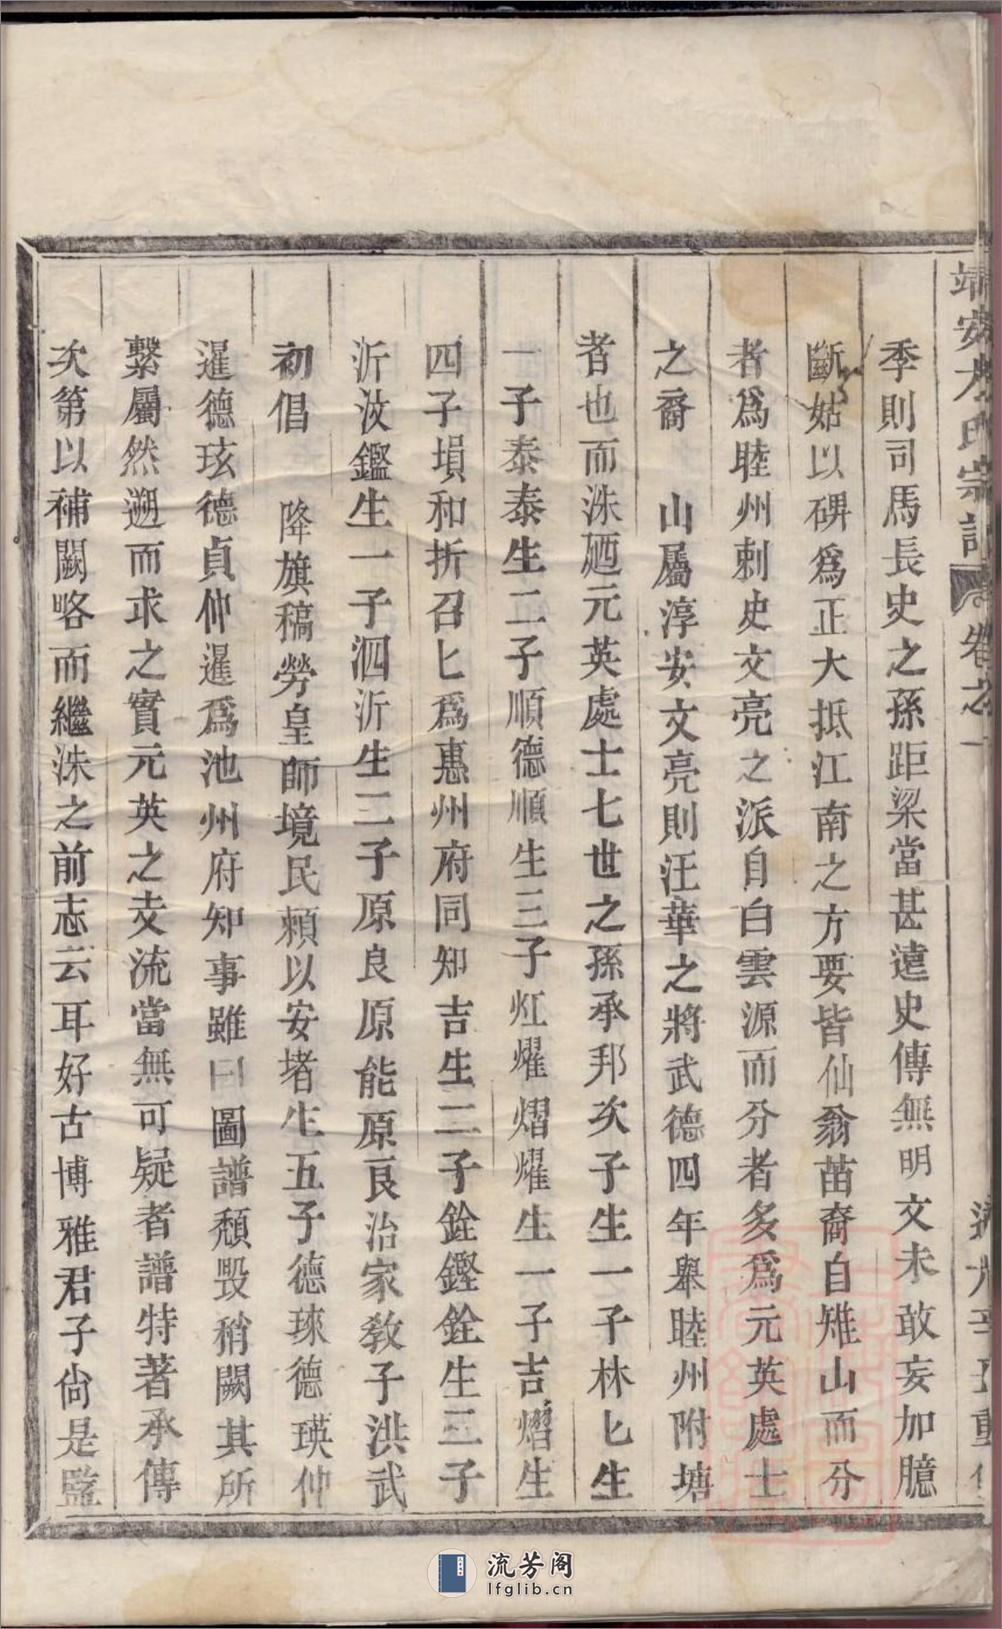 靖安方氏宗譜 卷之一 道光辛丑重修
季則司馬長史之孫距梁當甚遠史傳無明文未敢妄加臆
斷姑以碑爲正大抵江南之方要皆仙翁苗裔自雉山而分
者爲睦州刺史文亮之派自白雲源而分者多爲元英處士
之裔 山屬淳安文亮則汪華之將武德四年舉睦州附塘
者也而洙廼元英處士七世之孫承邦次子生一子林匕生
一子泰泰生二子順德順生三子灴燿熠燿生一子吉熠生
四子塤和折召匕爲惠州府同知吉生二子銓鏗銓生三子
沂汝鑑生一子泗沂生二子原良原能原良治家教子洪武
初倡 降旗稿勞皇師境民賴以安堵生五子德琜德瑛仲
暹德玹德貞仲暹爲池州府知事雖曰圖譜頹毀稍闕其所
繫屬然遡而求之實元英之支流當無可疑者譜特著承傳
次第以補闕略而繼洙之前志云耳好古博雅君子尙是鑒